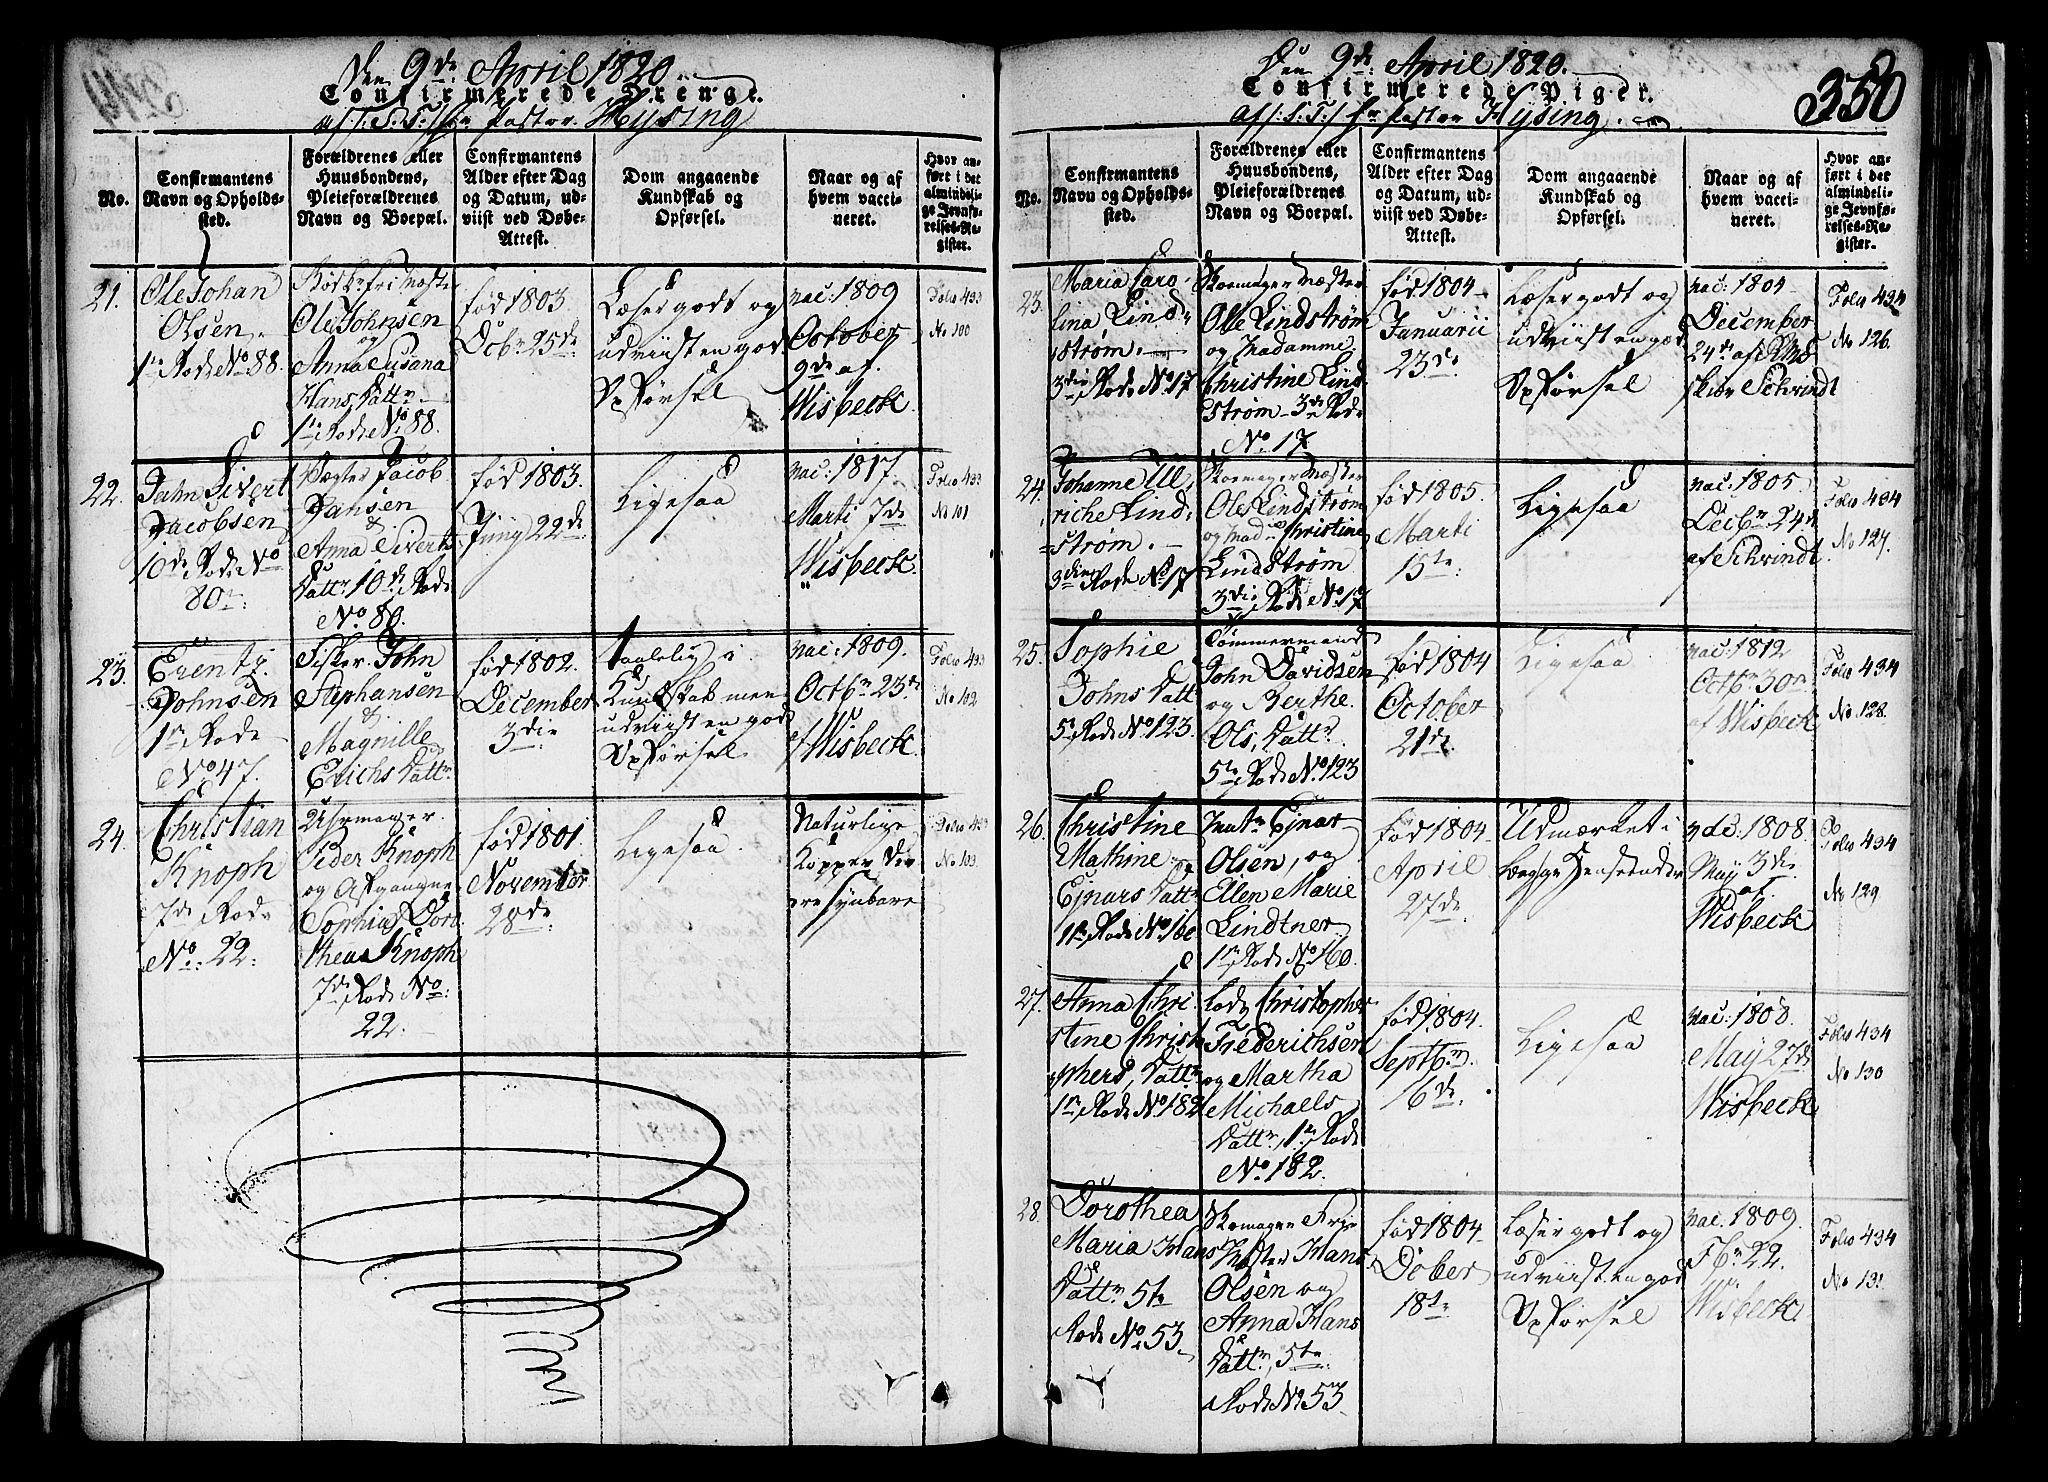 Den 9de April 1820.
Confirmerede Drenge.
af S. T. Hr Pastor Hysing
No.
Confirmantens
Navn og Opholds-
sted.
Forældrenes eller
Huusbondens,
Pleieforældrenes
Navn og Boepæl.
Confirmantens
Alder efter Dag
og Datum, ud-
viist ved Døbe-
Attest.
Dom angaaende
Kundskab og
Opførsel.
Naar og af
hvem vacci-
neret.
Hvor an-
ført i det
almindeli-
ge Jevnfø-
relses-Re-
gister.
21.
Ole Johan
Olsen
1te Rode No 88.
Ole Johnsen
og
Anna Susana
Hans Dattr
1te Rode No 88.
født 1803
Octbr 25de
Læser godt og
udviist en god
Opførsel
vac: 1809
October
9de af
Wisbeck
Folio 433
No 100
22.
Jahn Sivert
Jacobsen
10de Rode No
80
Jacob
Jansen
&
Anna Siverts
Dattr 10de Rode
No 80.
født 1803.
Juny 22de
Ligesaa
vac: 1817.
Marti 7de
Wisbeck.
Folio 433
No 101
23.
Erents
Johnsen
1te Rode
No 47.
Fisker John
Stephansen
&
Magnille
Erichs Dattr
født 1802.
December
3die
Taalelig i
Kundskab men
udviist en god
Opførsel
vac: 1809.
Octbr 23de
af Wisbeck
Folio 433
No 102
24.
Christian
Knoph
7de Rode
No: 22
Uhrmager
Peder Knoph
og Afgangne
Sophia Dort
thea Knoph
7de Rode No
22.
født 1801
November
28de
Ligesaa
Naturlige
Kopper
ere synbare
Folio 433
No 103.
Den 9de April 1820.
350
Confirmerede Piger.
af S. T. Hr Pastor Hysing.
No.
Confirmantens
Navn og Opholds-
sted.
Forældrenes eller
Huusbondens,
Pleieforældrenes
Navn og Boepæl.
Confirmantens
Alder efter Dag
og Datum, ud-
viist ved Døbe-
Attest.
Dom angaaende
Kundskab og
Opførsel.
Naar og af
hvem vacci-
neret.
Hvor an-
ført i det
almindeli-
ge Jevnfø-
relses-Re-
gister.
23.
Maria Caro-
lina Lind-
strøm.
3die Rode No 17
Skomager Mester
Olle Lindstrøm
og Madamme
Christine Lind
strøm 3die Rode
No 17
født 1804
Januarii
23de
Læser godt og
udviist en god
Opførsel
vac: 1804
December
24de af
Schvindt
Folio 434
No 126.
24.
Johanne Ul,
riche Lind,
strøm.
3die Rode No 17
Skomager Mester
Oles Lindstrøm
og Mad: Christine
Lindstrøm
3die Rode No 17
født 1805.
Marti
15te
Ligesaa
vac: 1805.
Decbr 24de
af Schvindt
Folio 434
No 127.
25.
Sophie
Johns Datt
5te Rode No 123
Tømmermand
John Davidsen
og Berthe
Ols, Dattr
5te Rode No 123
født 1804
October
21de
Ligesaa
vac: 1812
Octbr 30
af Wisbeck
Folio 434
No 128.
26.
Christine
Mathine
Ejnars Dattr
1te Rode No 160
Matr Ejnar
Olsen, og
Ellen Marie
Lindtner
1te Rode No 160.
født 1804
April
27de
Udmærket i
begge Henseender
vac: 1808
May 3die
af
Wisbeck
Folio 434
No 129
27.
Anna Chri
stine Christo
phers, Dattr
1te Rode No 182
Lods Christopher
Frederichsen
og Martha
Michaels
Dattr, 1te Rode
No 182.
født 1804.
Septbr
16de
Ligesaa
vac: 1808.
May 27de
Wisbeck
Folio 434
No 130
28.
Dorothea
Maria Hans
Dattr 5te
Rode No 53
Skomager
Mester Hans
Olsen og
Anna Hans
Dattr, 5te
Rode No 53
født 1804
October
18de
Læser godt og
udviist en god
Opførsel
vac. 1809.
Fbr 22.
Wisbeck
Folio 434
No 131